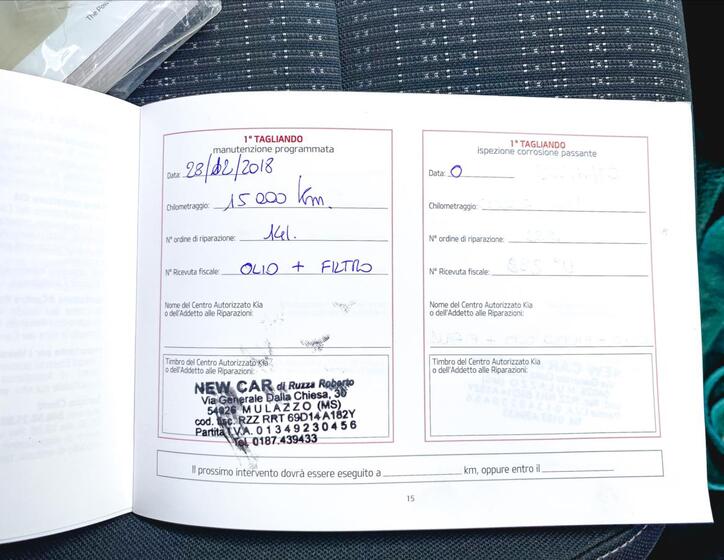 The Po
1° TAGLIANDO
manutenzione programmata
Data: 28/02/2018
Chilometraggio: 15000 Km.
N° ordine di riparazione: 141.
N° Ricevuta fiscale: OLIO + FILTRO
Nome del Centro Autorizzato Kia
o dell'Addetto alle Riparazioni:
Timbro del Centro Autorizzato Kia
o dell'Addetto alle Riparazioni:
NEW CAR di Ruzza Roberto
Via Generale Dalla Chiesa, 30
54026 MULAZZO (MS)
cod. fisc. RZZ RRT 69D14 A182Y
Partita I.V.A. 01349230456
Tel. 0187.439433
1° TAGLIANDO
ispezione corrosione passante
Data: O
Chilometraggio:
N° ordine di riparazione:
N° Ricevuta fiscale:
Nome del Centro Autorizzato Kia
o dell'Addetto alle Riparazioni:
Timbro del Centro Autorizzato Kia
o dell'Addetto alle Riparazioni:
Il prossimo intervento dovrà essere eseguito a km, oppure entro il
15